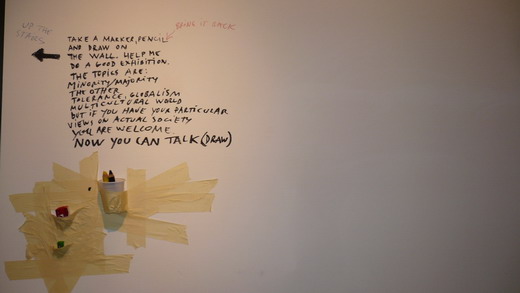 UP THE
STAIRS
BRING IT BACK
TAKE A MARKER, PENCIL
AND DRAW ON
THE WALL. HELP ME
DO A GOOD EXHIBITION.
THE TOPICS ARE:
MINORITY/MAJORITY
THE OTHER
TOLERANCE, GLOBALISM
MULTICULTURAL WORLD
BUT IF YOU HAVE YOUR PARTICULAR
VIEWS ON ACTUAL SOCIETY
YOU ARE WELCOME
NOW YOU CAN TALK (DRAW)